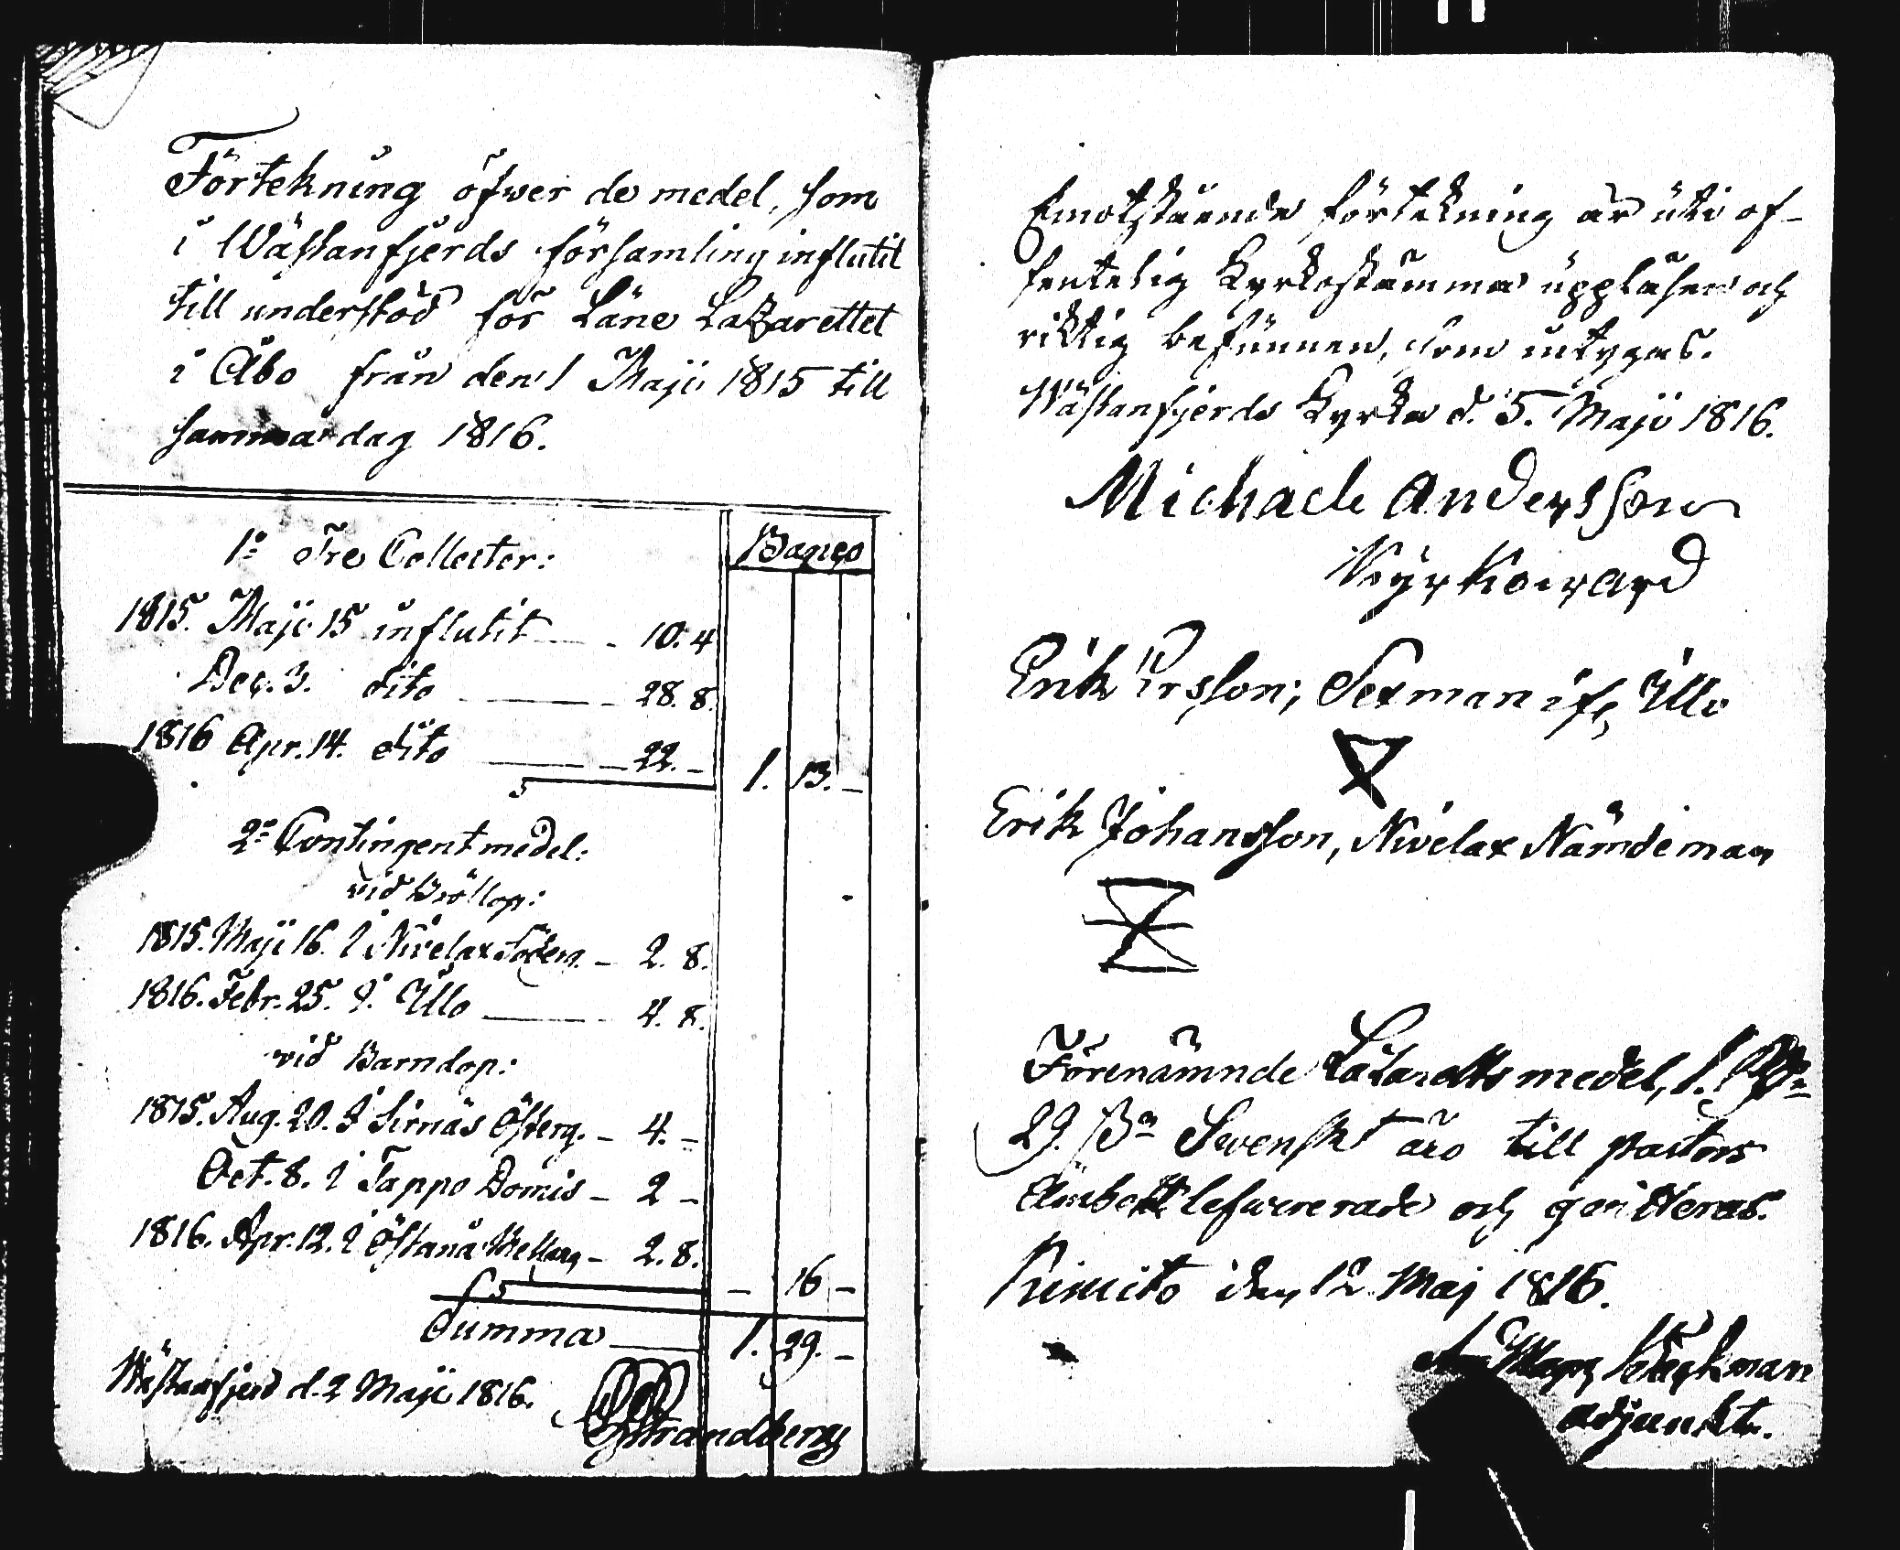 Förtekning öfwer de medel, som
i Wästanfjerds församling influtit
till understöd för Läne Lazarettet
i Åbo från den 1 Maji 1815 till
samma dag 1816.
Banco
1o Tre Collecter:
1815. Maji 15 influtit — - 10. 4
Dec. 3. dito — - 28. 8.
1816 Apr. 14. dito — - 22. - 1. 13. -
2o Contingent medel:
vid Bröllop:
1815. Maji 16. i Nivelax Söderg. - 2. 8.
1816. Febr. 25. i Illo — - 4. 8.
vid Barndop:
1815. Aug. 20. i Sirnäs Österg. - 4. -
Oct. 8. i Tappo Domis - 2 -
1816. Apr. 12. i Östanå Mellang - 2. 8. - 16 -
Summa — 1. 29. -
Wästanfjerd d. 2 Maji 1816.
Strandberg
Emotstående förtekning är uti of-
fentelig Kyrkostämma uppläsen och
riktig befunnen, som intygas.
Wästanfjerds Kyrka d. 5. Maji 1816.
Michael Andersson
Kyrkoward
Erik Ersson, Sexman if. Illo
Erik Johansson, Nivelax Nämdeman
Förenämnde Lazaretts medel, 1. Rdr
29. s Bo Swenskt äro till pastors
Embetet lefwererade och qvitteras.
Kimito den 12 Maj 1816.
adjunkt.